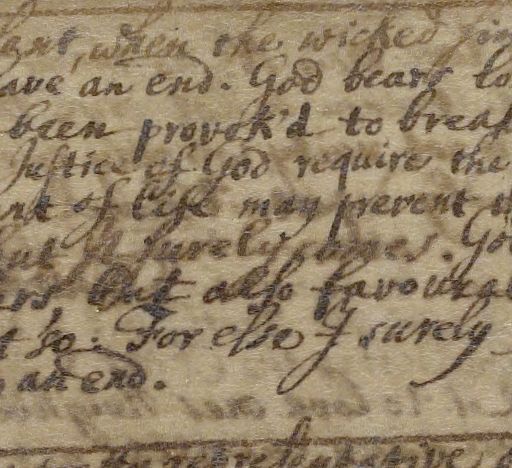 when the wicked
ave an end. God bears lo
been provok'd to break
Justice of God require the
nt of life may prevent
but it surely comes. Go
ars but also favourab
t so. For else I surely
an end.
representative